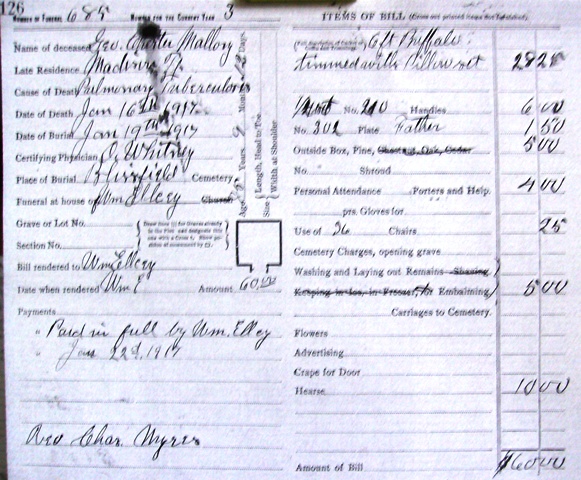 126
NUMBER OF FUNERAL 685 NUMBER FOR THE CURRENT YEAR 3
Name of deceased Geo. Carter Mallory
Late Residence
Cause of Death Pulmonary Tuberculosis
Date of Death Jan 16th 1917
Date of Burial Jan 19th 1917
Certifying Physician O. Whitney
Place of Burial Blissfield Cemetery
Funeral at house of Wm Elley Church
Grave or Lot No.
Section No.
Bill rendered to Wm Elley
Date when rendered Wm E Amount 60.00
Payments
" Paid in full by Wm. Elley
" Jan 22d, 1917
Rev Chas. Myres
Age Years 9 Months Days
Size Length, Head to Toe.
Width at Shoulder
ITEMS OF BILL
6 ft Buffalo
trimmed with Pillow set 28 25
No. 210 Handles 6 00
No. 302 Plate Father 1 50
Outside Box, Pine, Chestnut, Oak, Cedar 5 00
No. Shroud
Personal Attendance Porters and Help. 4 00
prs. Gloves for
Use of 36 Chairs 25
Cemetery Charges, opening grave
Washing and Laying out Remains Shaving
Keeping in Ice, in Freezer, for Embalming 5 00
Carriages to Cemetery.
Flowers
Advertising
Crape for Door
Hearse 10 00
Amount of Bill $60.00